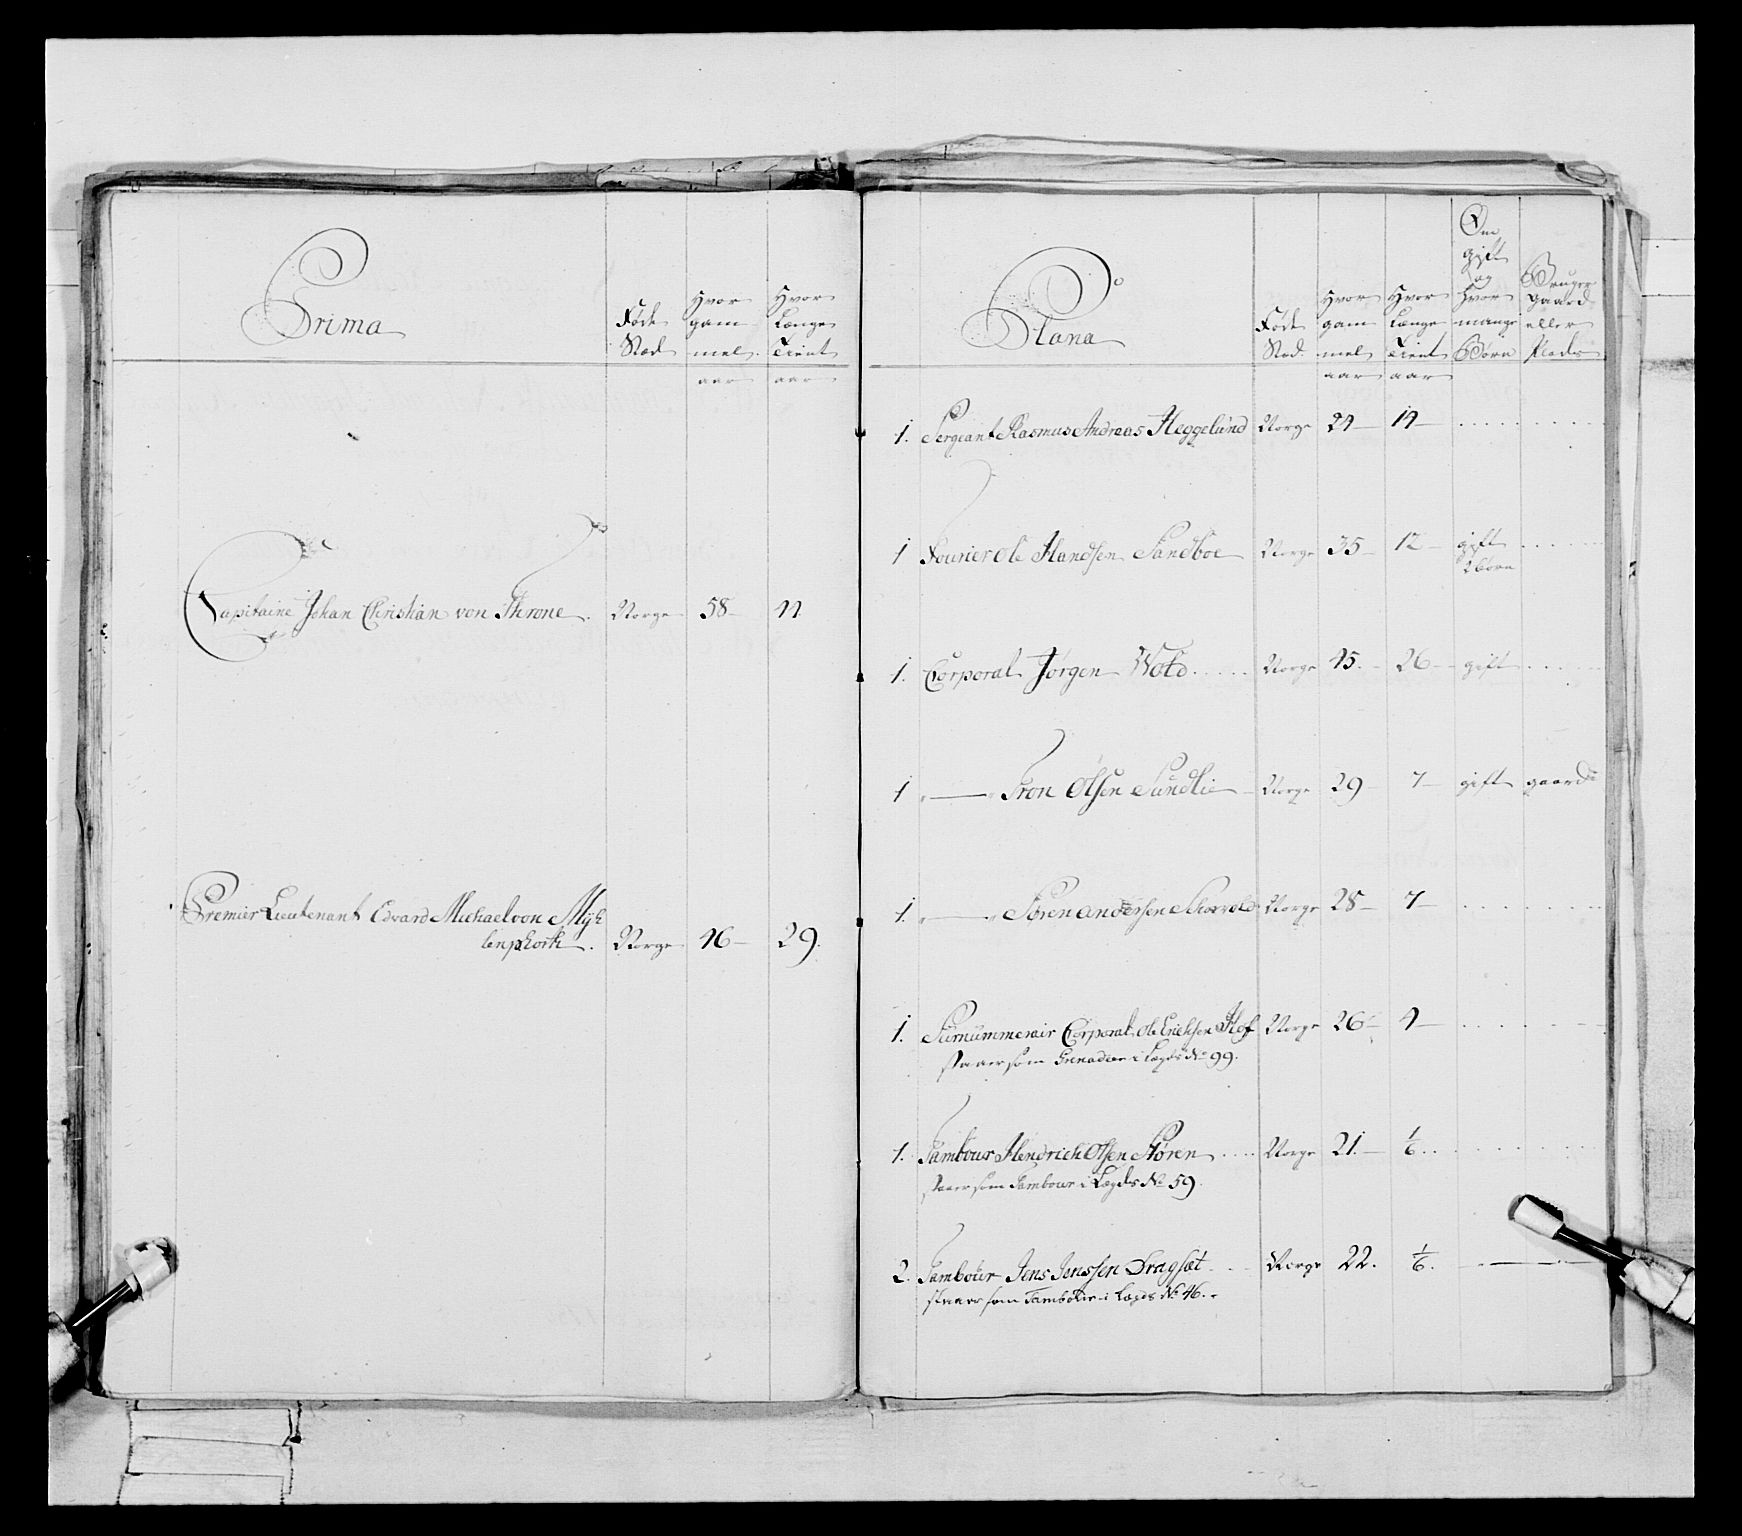 Prima
Føde Stæd
Hvor gammel
Hvor Længe Tient
aar aar
Capitaine Johan Christian von Throne. Norge 58 44
Premier Lieutenant Edvard Michael von Myh
lenphorth. Norge 46 29.
Plana
Føde Stæd
Hvor gammel
Hvor Længe Tient
Om gift og hvor mange Børn
Bruger gaard eller Plads
aar aar
1. Sergeant Rasmus Andreas Heggelund Norge 24 14
1 Fourier Ole Handsen Sandboe Norge 35 12 gift
2 børn
1. Corporal Jørgen Wold Norge 45. 26 gift
1 Tron Olsen Sundlie Norge 29 7 gift gaard
1. Søren Andersen Norge 28 7
1. Surnummerair Corporal Ole Erichsen Hof Norge 26 4
staaer som Grenadeer i Lægds No 99.
1. Tambour Hendrich Olsen Støren Norge 21. 1/6
staaer som Tambour i Lægds No 59.
2. Tambour Jens Jenssen Dragsæt Norge 22. 1/6.
staaer som Tambour i Lægds No 46.